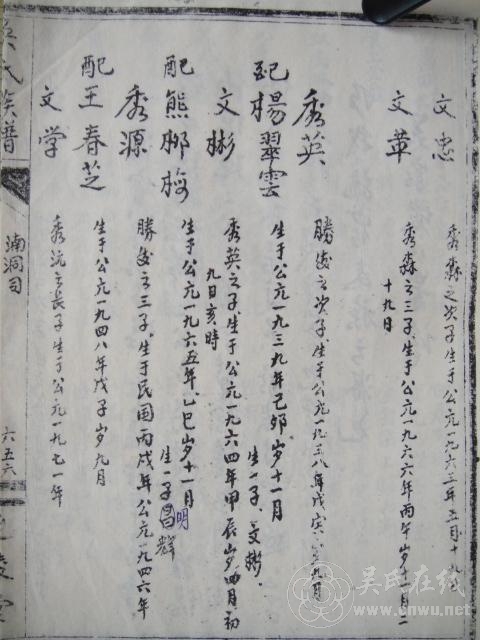 文忠
秀森之次子生于公元一九六三年五月十
文革
秀森之三子生于公元一九六六年丙午岁十一月二
十九日
秀英
勝发之次子生于公元一九三八年戊寅岁九月
配楊翠雲
生于公元一九三九年己卯岁十一月
生一子文彬
文彬
秀英之子生于公元一九六四年甲辰岁四月初
九日亥時
配熊柳梅
生于公元一九六五年乙巳岁十一月
生一子昌輝
明
秀源
勝发之三子生于民国丙戌年公元一九四六年
配王春芝
生于公元一九四八年戊子岁九月
文学
秀沅之長子生于公元一九七一年
吴氏族譜
湳洞司
六五六
吴氏在线
www.cnwu.net